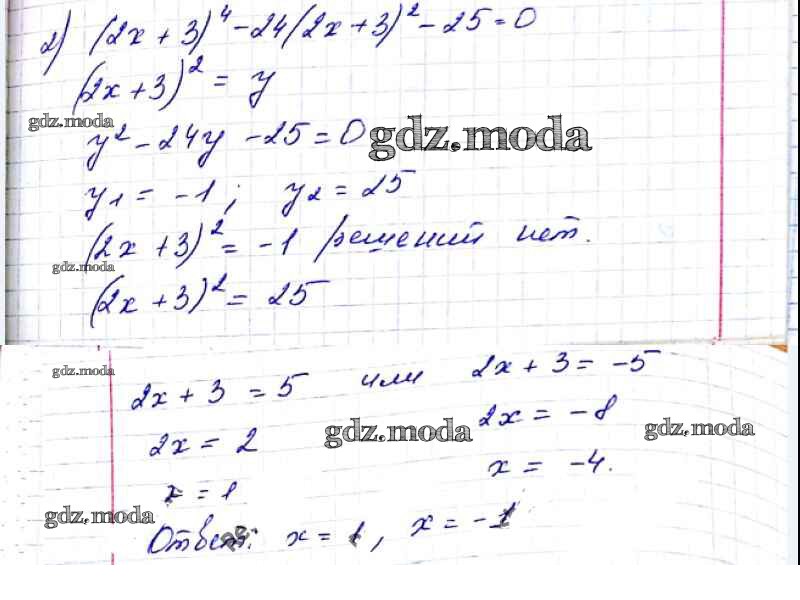 2) (2x + 3)⁴ - 24(2x + 3)² - 25 = 0
(2x + 3)² = y
gdz.moda
y² - 24y - 25 = 0 gdz.moda
y₁ = -1 ; y₂ = 25
(2x + 3)² = -1 решений нет.
gdz.moda
(2x + 3)² = 25
gdz.moda
2x + 3 = 5 или 2x + 3 = -5
2x = 2 gdz.moda 2x = -8 gdz.moda
x = 1 x = -4.
gdz.moda
Ответ: x = 1, x = -1